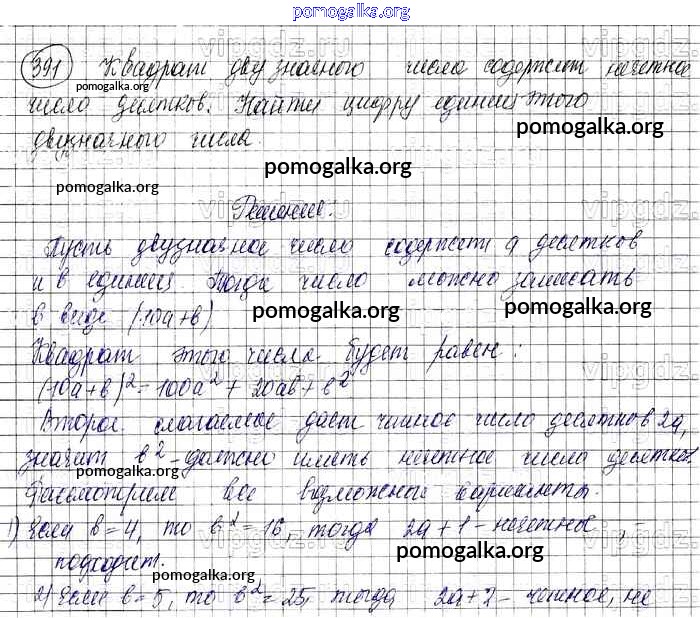 pomogalka.org
391 Квадрат двузначного числа содержит нечетное
pomogalka.org
число десятков. Найти цифру единиц этого
pomogalka.org
двузначного числа.
pomogalka.org
pomogalka.org
Решение.
Пусть двузначное число содержит a десятков
и в единиц. Тогда число можно записать
в виде (10a+в)
pomogalka.org
pomogalka.org
Квадрат этого числа будет равен:
(10a+в)²=100a²+20aв+в²
Второе слагаемое даст четное число десятков 2a,
значит в²-должно иметь нечетное число десятков.
pomogalka.org
Рассмотрим все возможные варианты.
1) Если в=4, то в²=16, тогда 2a+1-нечетное, -
подходит.
pomogalka.org
pomogalka.org
2) Если в=5, то в²=25, тогда 2a+2-четное, не